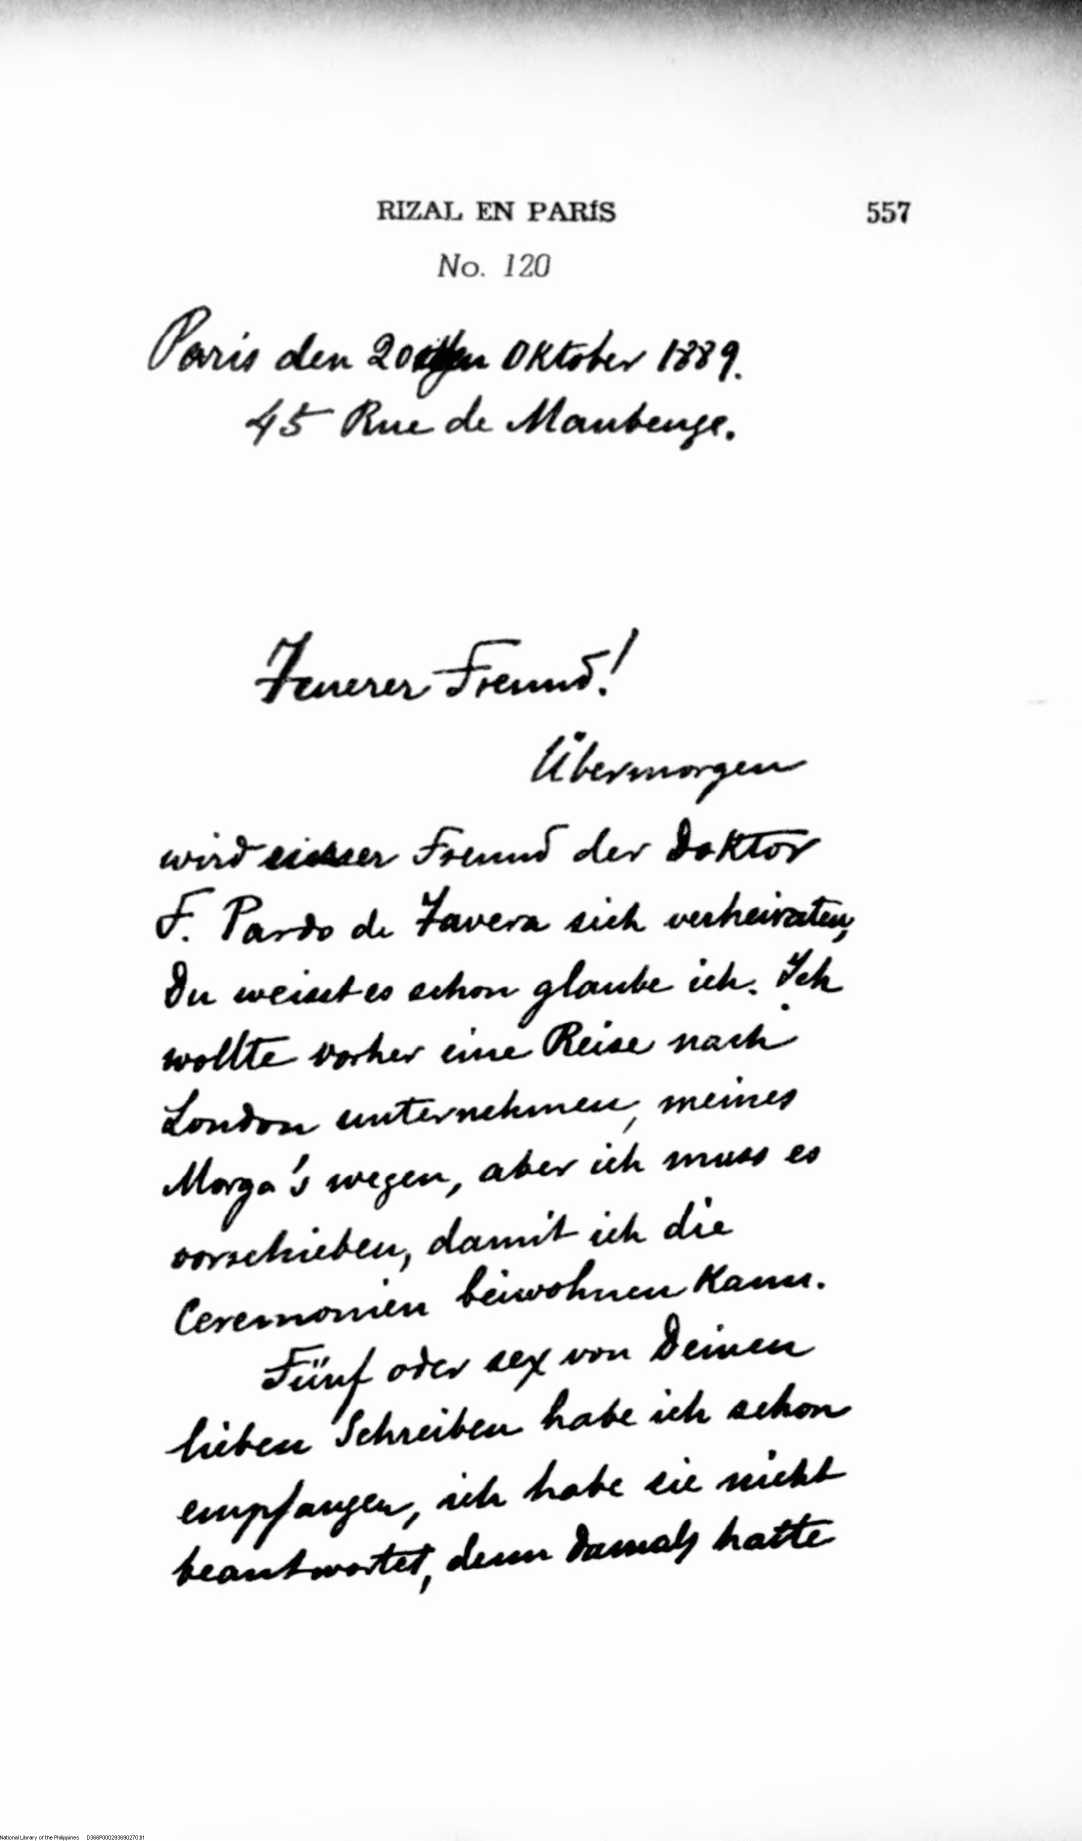 RIZAL EN PARÍS 557
No. 120
Paris den 20 Oktober 1889.
45 Rue de Maubenge.
Teuerer Freund!
Übermorgen
wird Freund der Doktor
F. Pardo de Tavera sich verheiraten,
Du weisst es schon glaube ich. Ich
wollte vorher eine Reise nach
London unternehmen, meines
Morga's wegen, aber ich muss es
vorschieben, damit ich die
Ceremonien beiwohnen Kann.
Fünf oder sex von Deinen
lieben Schreiben habe ich schon
empfangen, ich habe sie nicht
beantwortet, denn damals hatte
National Library of the Philippines